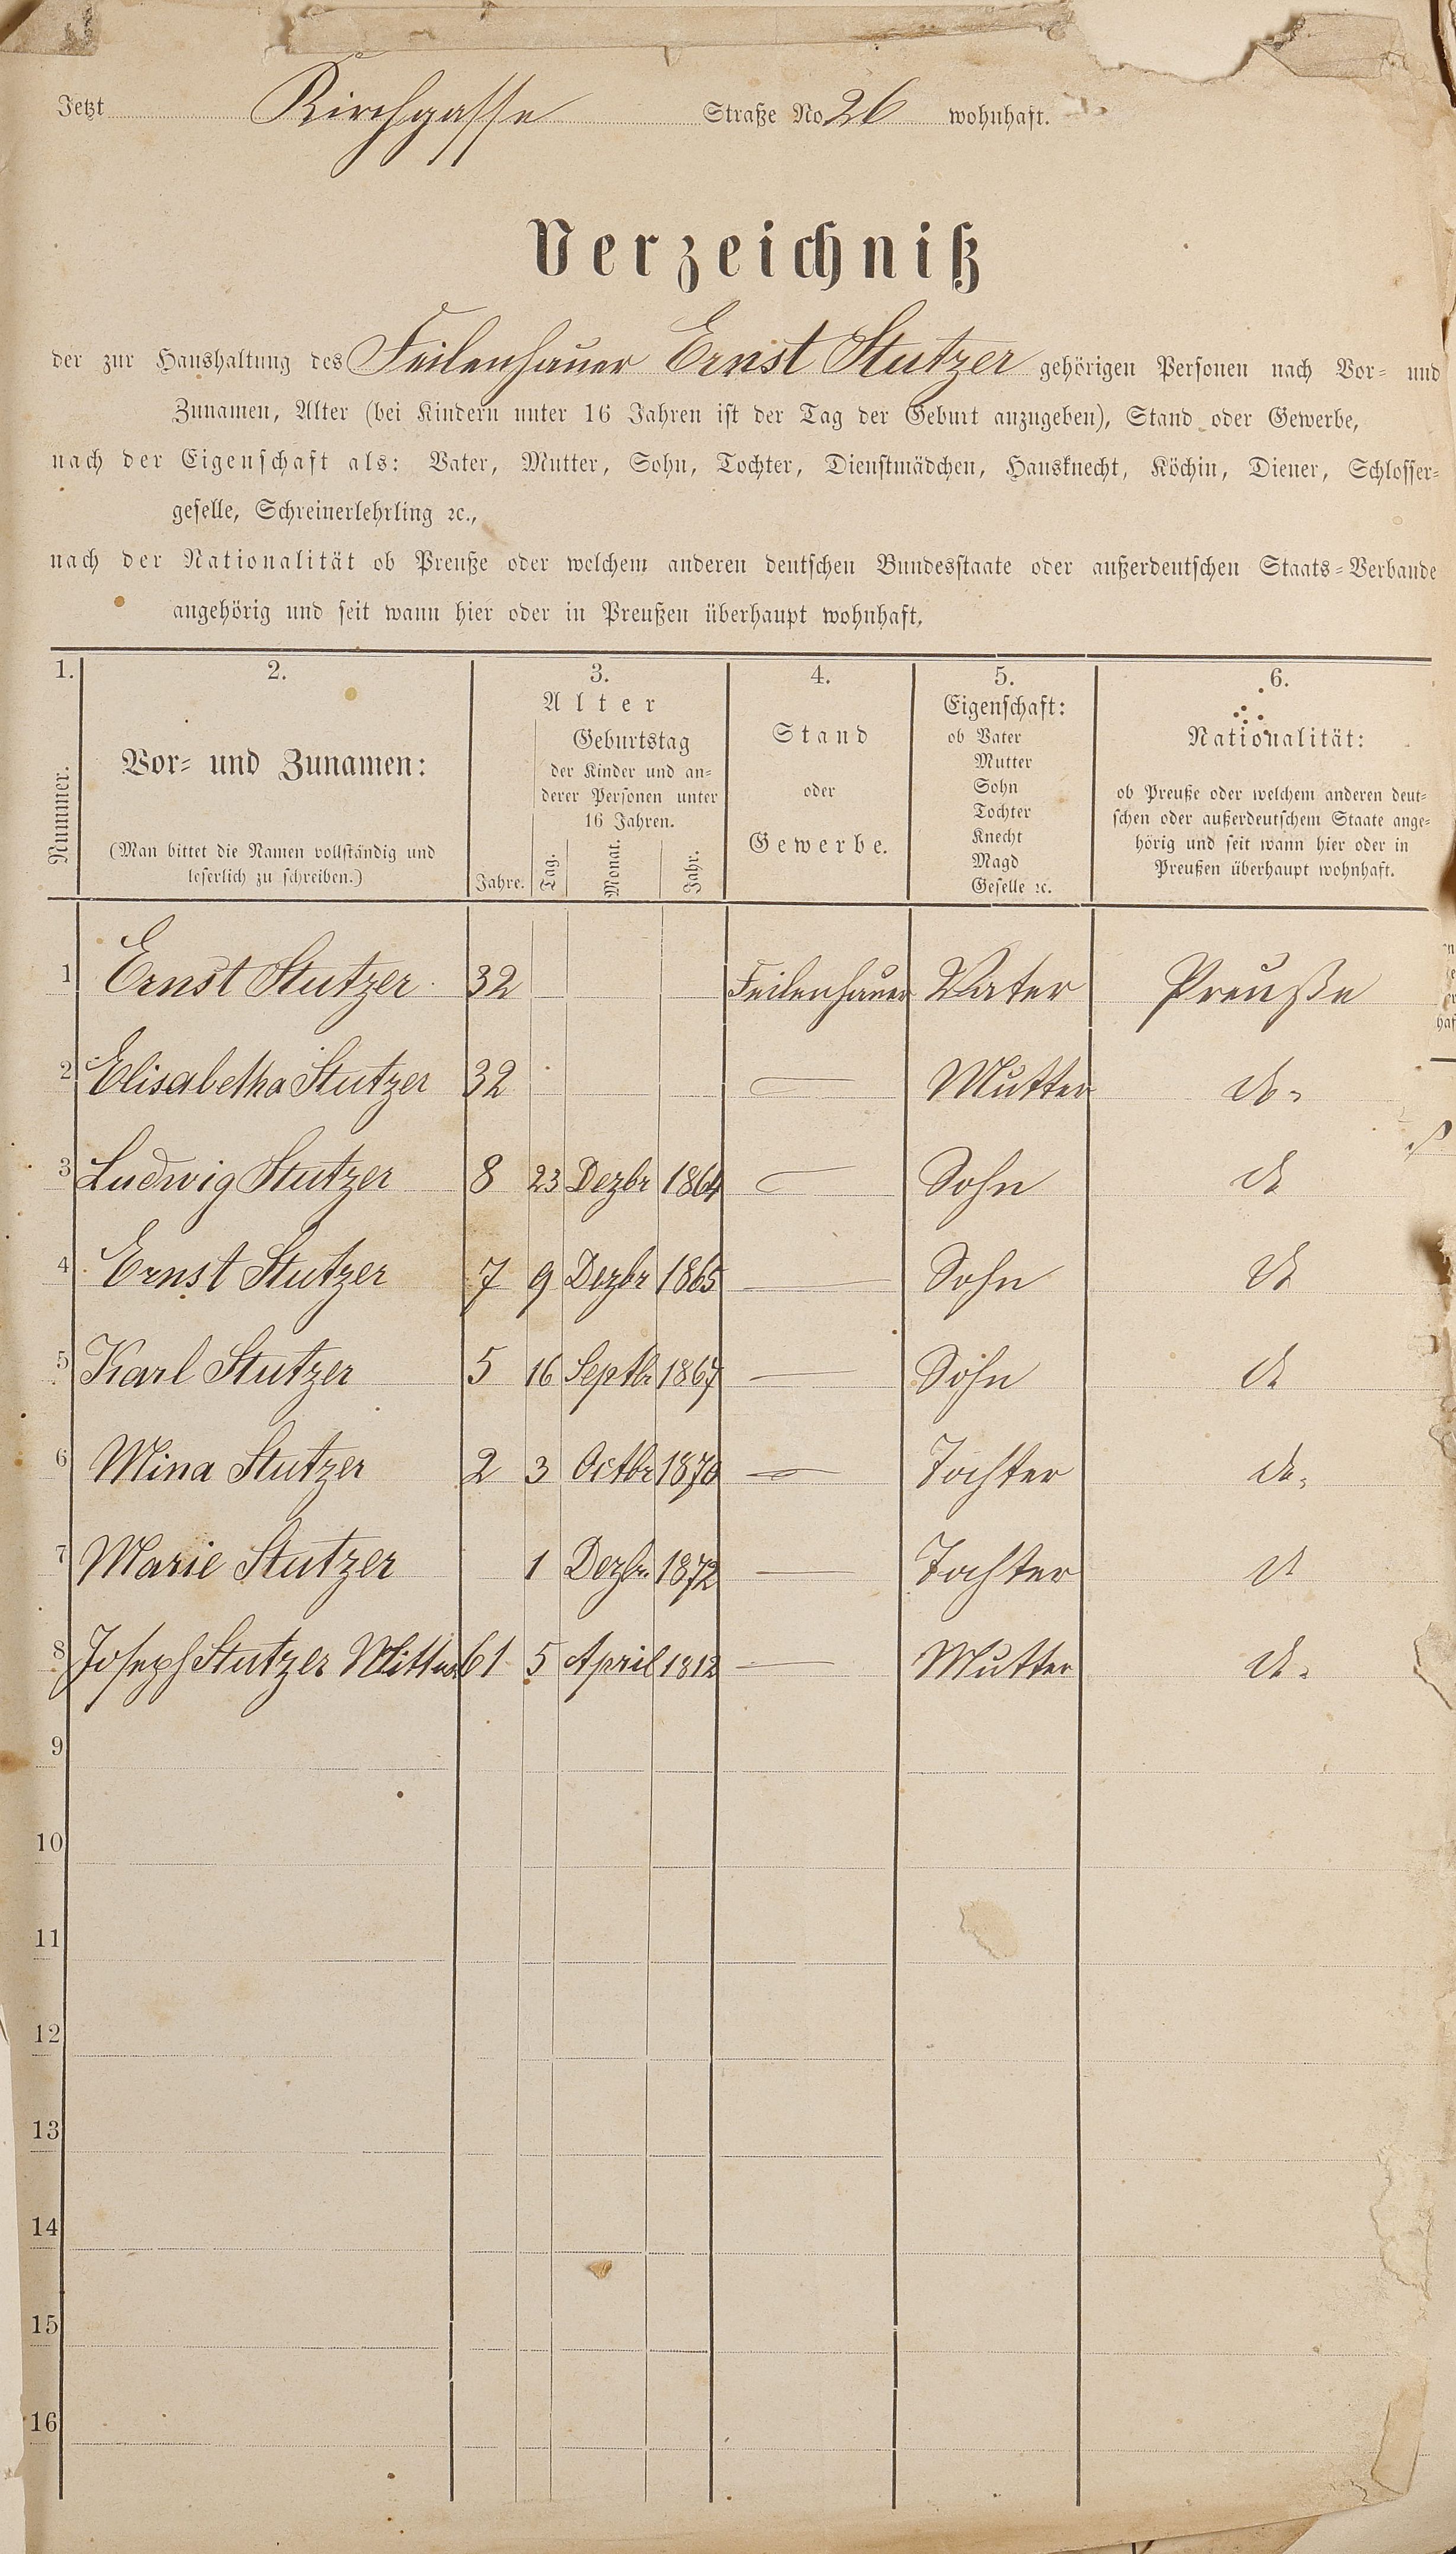 Jetzt Kirchgasse Straße No 26 wohnhaft.
Verzeichniß
der zur Haushaltung des Feilenhauer Ernst Stutzer gehörigen Personen nach Vor- und
Zunamen, Alter (bei Kindern unter 16 Jahren ist der Tag der Geburt anzugeben), Stand oder Gewerbe,
nach der Eigenschaft als: Vater, Mutter, Sohn, Tochter, Dienstmädchen, Hausknecht, Köchin, Diener, Schlosser-
geselle, Schreinerlehrling ꝛc.,
nach der Nationalität ob Preuße oder welchem anderen deutschen Bundesstaate oder außerdeutschen Staats-Verbande
angehörig und seit wann hier oder in Preußen überhaupt wohnhaft.
1. 2. 3. 4. 5. 6.
Nummer.
Vor- und Zunamen:
(Man bittet die Namen vollständig und
leserlich zu schreiben.)
Alter
Geburtstag
der Kinder und an-
derer Personen unter
16 Jahren.
Jahre. Tag. Monat. Jahr.
Stand
oder
Gewerbe.
Eigenschaft:
ob Vater
Mutter
Sohn
Tochter
Knecht
Magd
Geselle ꝛc.
Nationalität:
ob Preuße oder welchem anderen deut-
schen oder außerdeutschem Staate ange-
hörig und seit wann hier oder in
Preußen überhaupt wohnhaft.
1 Ernst Stutzer 32 Feilenhauer Vater Preuße
2 Elisabetha Stutzer 32 — Mutter do.
3 Ludwig Stutzer 8 23 Dezbr 1864 — Sohn do
4 Ernst Stutzer 7 9 Dezbr 1865 — Sohn do
5 Karl Stutzer 5 16 Septbr 1867 — Sohn do
6 Mina Stutzer 2 3 Octbr 1870 — Tochter do.
7 Marie Stutzer 1 Dezbr 1872 — Tochter do
8 Joseph Stutzer 61 5 April 1812 — Mutter do.
9
10
11
12
13
14
15
16